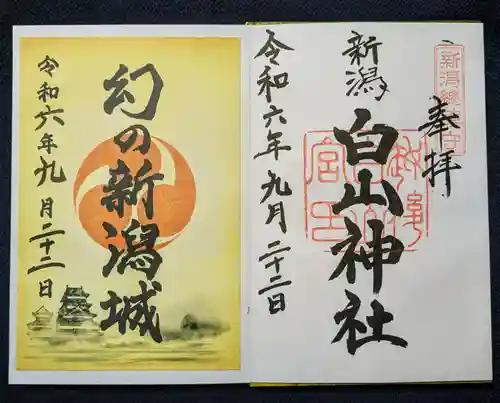 新潟總鎮守
奉拝
新潟
白山神社
令和六年九月二十二日
幻の新潟城
令和六年九月二十二日